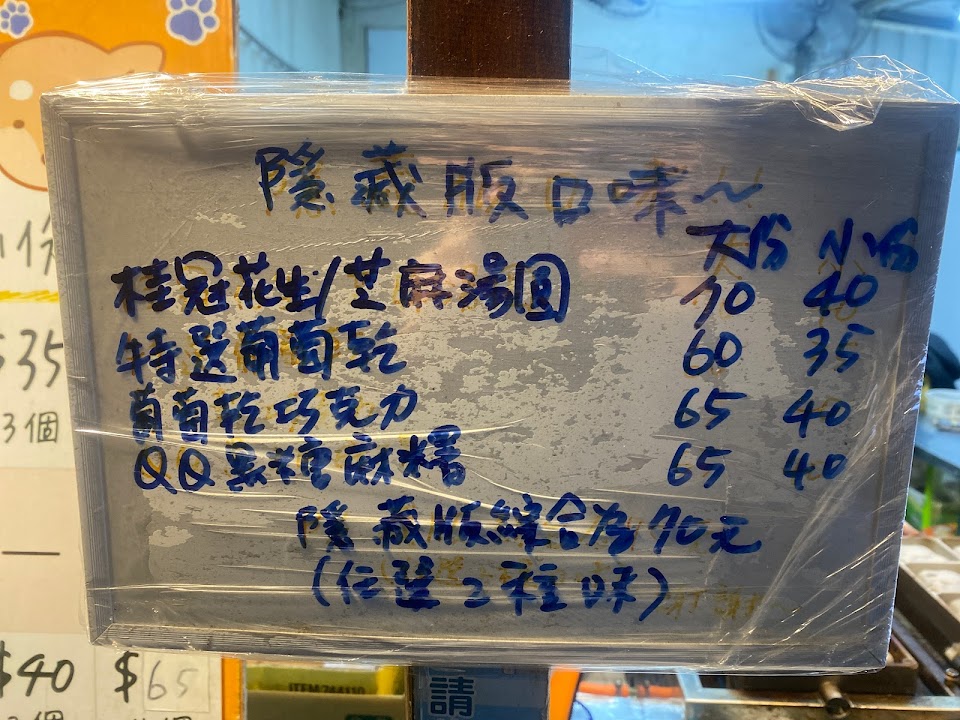 隱藏版口味～
大份 小份
桂冠花生/芝麻湯圓 70 40
特選葡萄乾 60 35
葡萄乾巧克力 65 40
QQ黑糖麻糬 65 40
隱藏版綜合為70元
(任選2種味)
小份
$35
3個
$40 $65
ITEM 244110
請